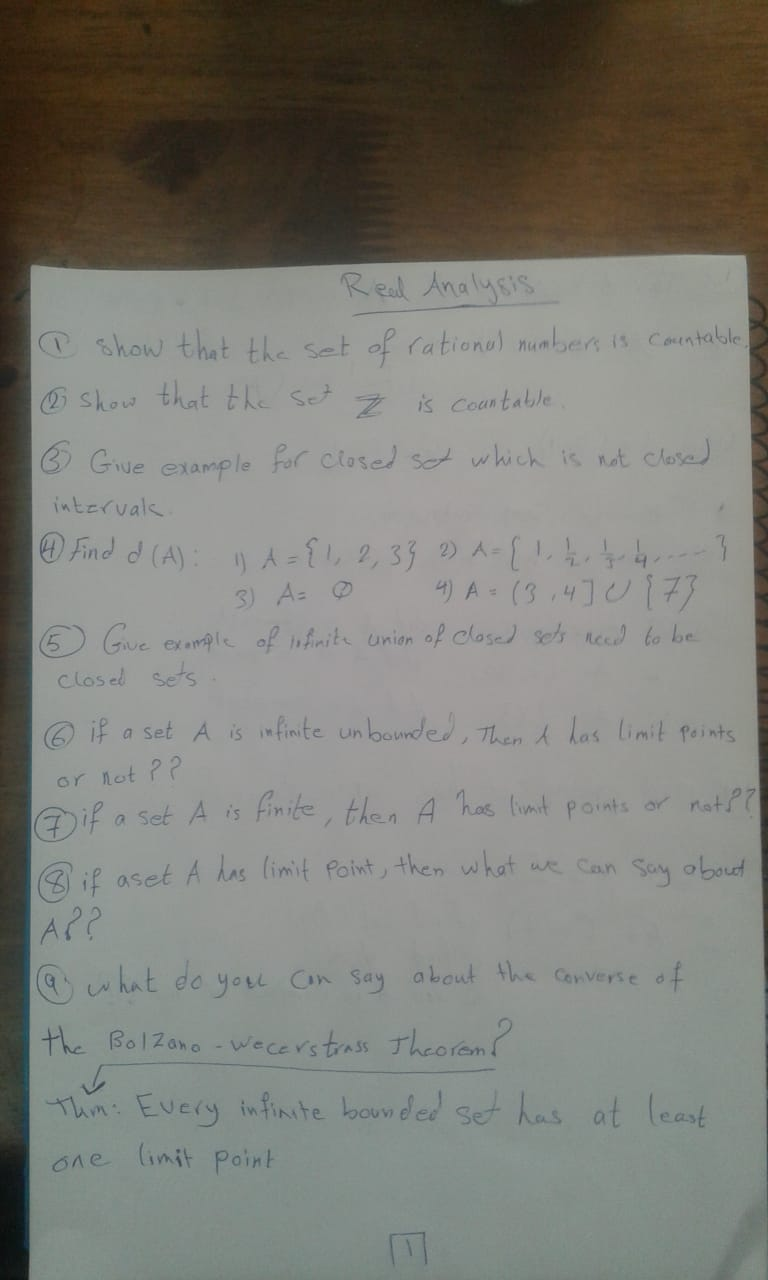 Real Analysis
① show that the set of rational numbers is countable.
② show that the set ℤ is countable.
③ Give example for closed set which is not closed
intervals.
④ Find d(A): 1) A={1, 2, 3} 2) A={1, 1/2, 1/3, 1/4, ....}
3) A= ∅ 4) A = (3,4]∪{7}
⑤ Give example of infinite union of closed sets need to be
closed sets.
⑥ if a set A is infinite unbounded, Then A has limit points
or not ??
⑦ if a set A is finite, then A has limit points or not??
⑧ if aset A has limit point, then what we can say about
A??
⑨ what do you can say about the converse of
the Bolzano - wecerstrass Theorem?
Thm: Every infinite bounded set has at least
one limit point
1